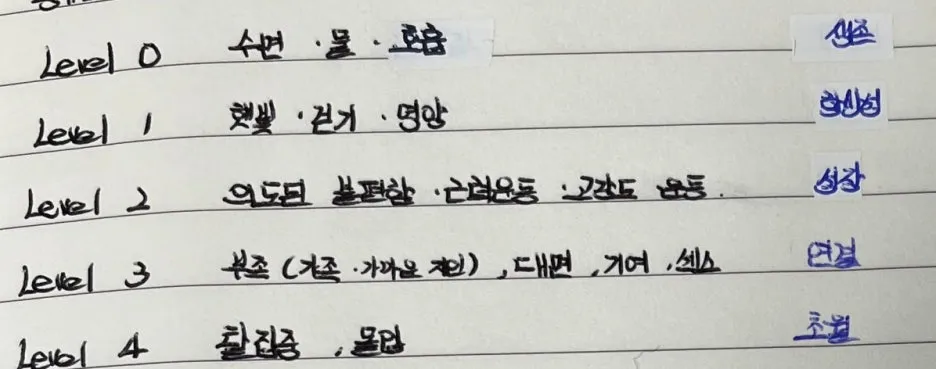 Level 0 수면 · 물 · 호흡 생존
Level 1 햇빛 · 걷기 · 영양 항상성
Level 2 의도된 불편함 · 근력운동 · 고강도 운동. 성장
Level 3 부족 (가족 · 가까운 지인), 대면, 기여, 섹스 연결
Level 4 촬집중, 몰입 초월